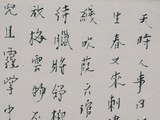 天時人事日
生春又來刺繡
綫吹葭六琯
待臘將舒柳
放梅雲物不
兒且覆掌中